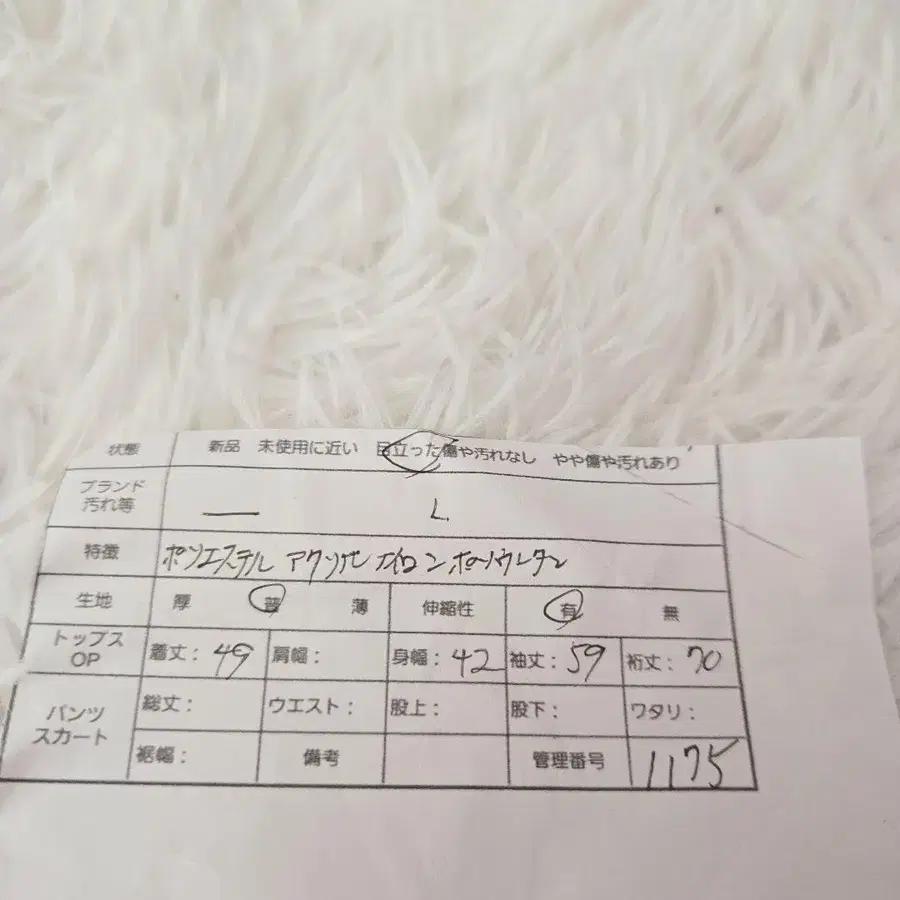 状態 新品 未使用に近い 目立った傷や汚れなし やや傷や汚れあり
ブランド
汚れ等 — L
特徴 ポリエステル アクリル ナイロン ポリウレタン
生地 厚 普 薄 伸縮性 有 無
トップス
OP 着丈：49 肩幅： 身幅：42 袖丈：59 裄丈：70
パンツ
スカート 総丈： ウエスト： 股上： 股下： ワタリ：
裾幅： 備考 管理番号 1175